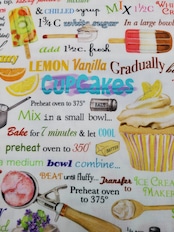 & CHILLED syrup
MIX 1½C.
1¾ C white sugar
In a large bowl
add 1½C. fresh
LEMON Vanilla Gradually
CUPCAKES
Preheat oven to 375°
Mix in a small bowl..
Bake for 7 minutes & let COOL
preheat oven to 350°
a medium bowl combine...
BEAT until fluffy... Transfer to ICE CREAM MAKER
Preheat oven to 375°